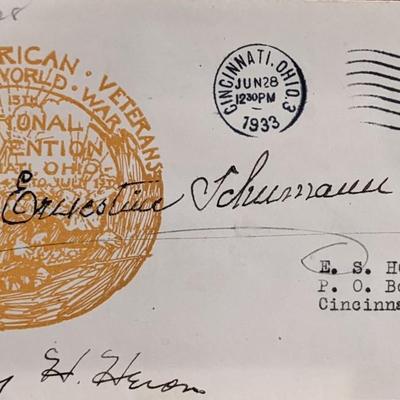 28
CINCINNATI, OHIO. 3
JUN 28
12 30 PM
1933
RICAN • VETERANS
WORLD • WAR
13TH
IONAL
VENTION
ATI OHIO
TO JULY 1ST
Ernestine Schumann
E. S. H
P. O. Bo
Cincinna
H. Heron